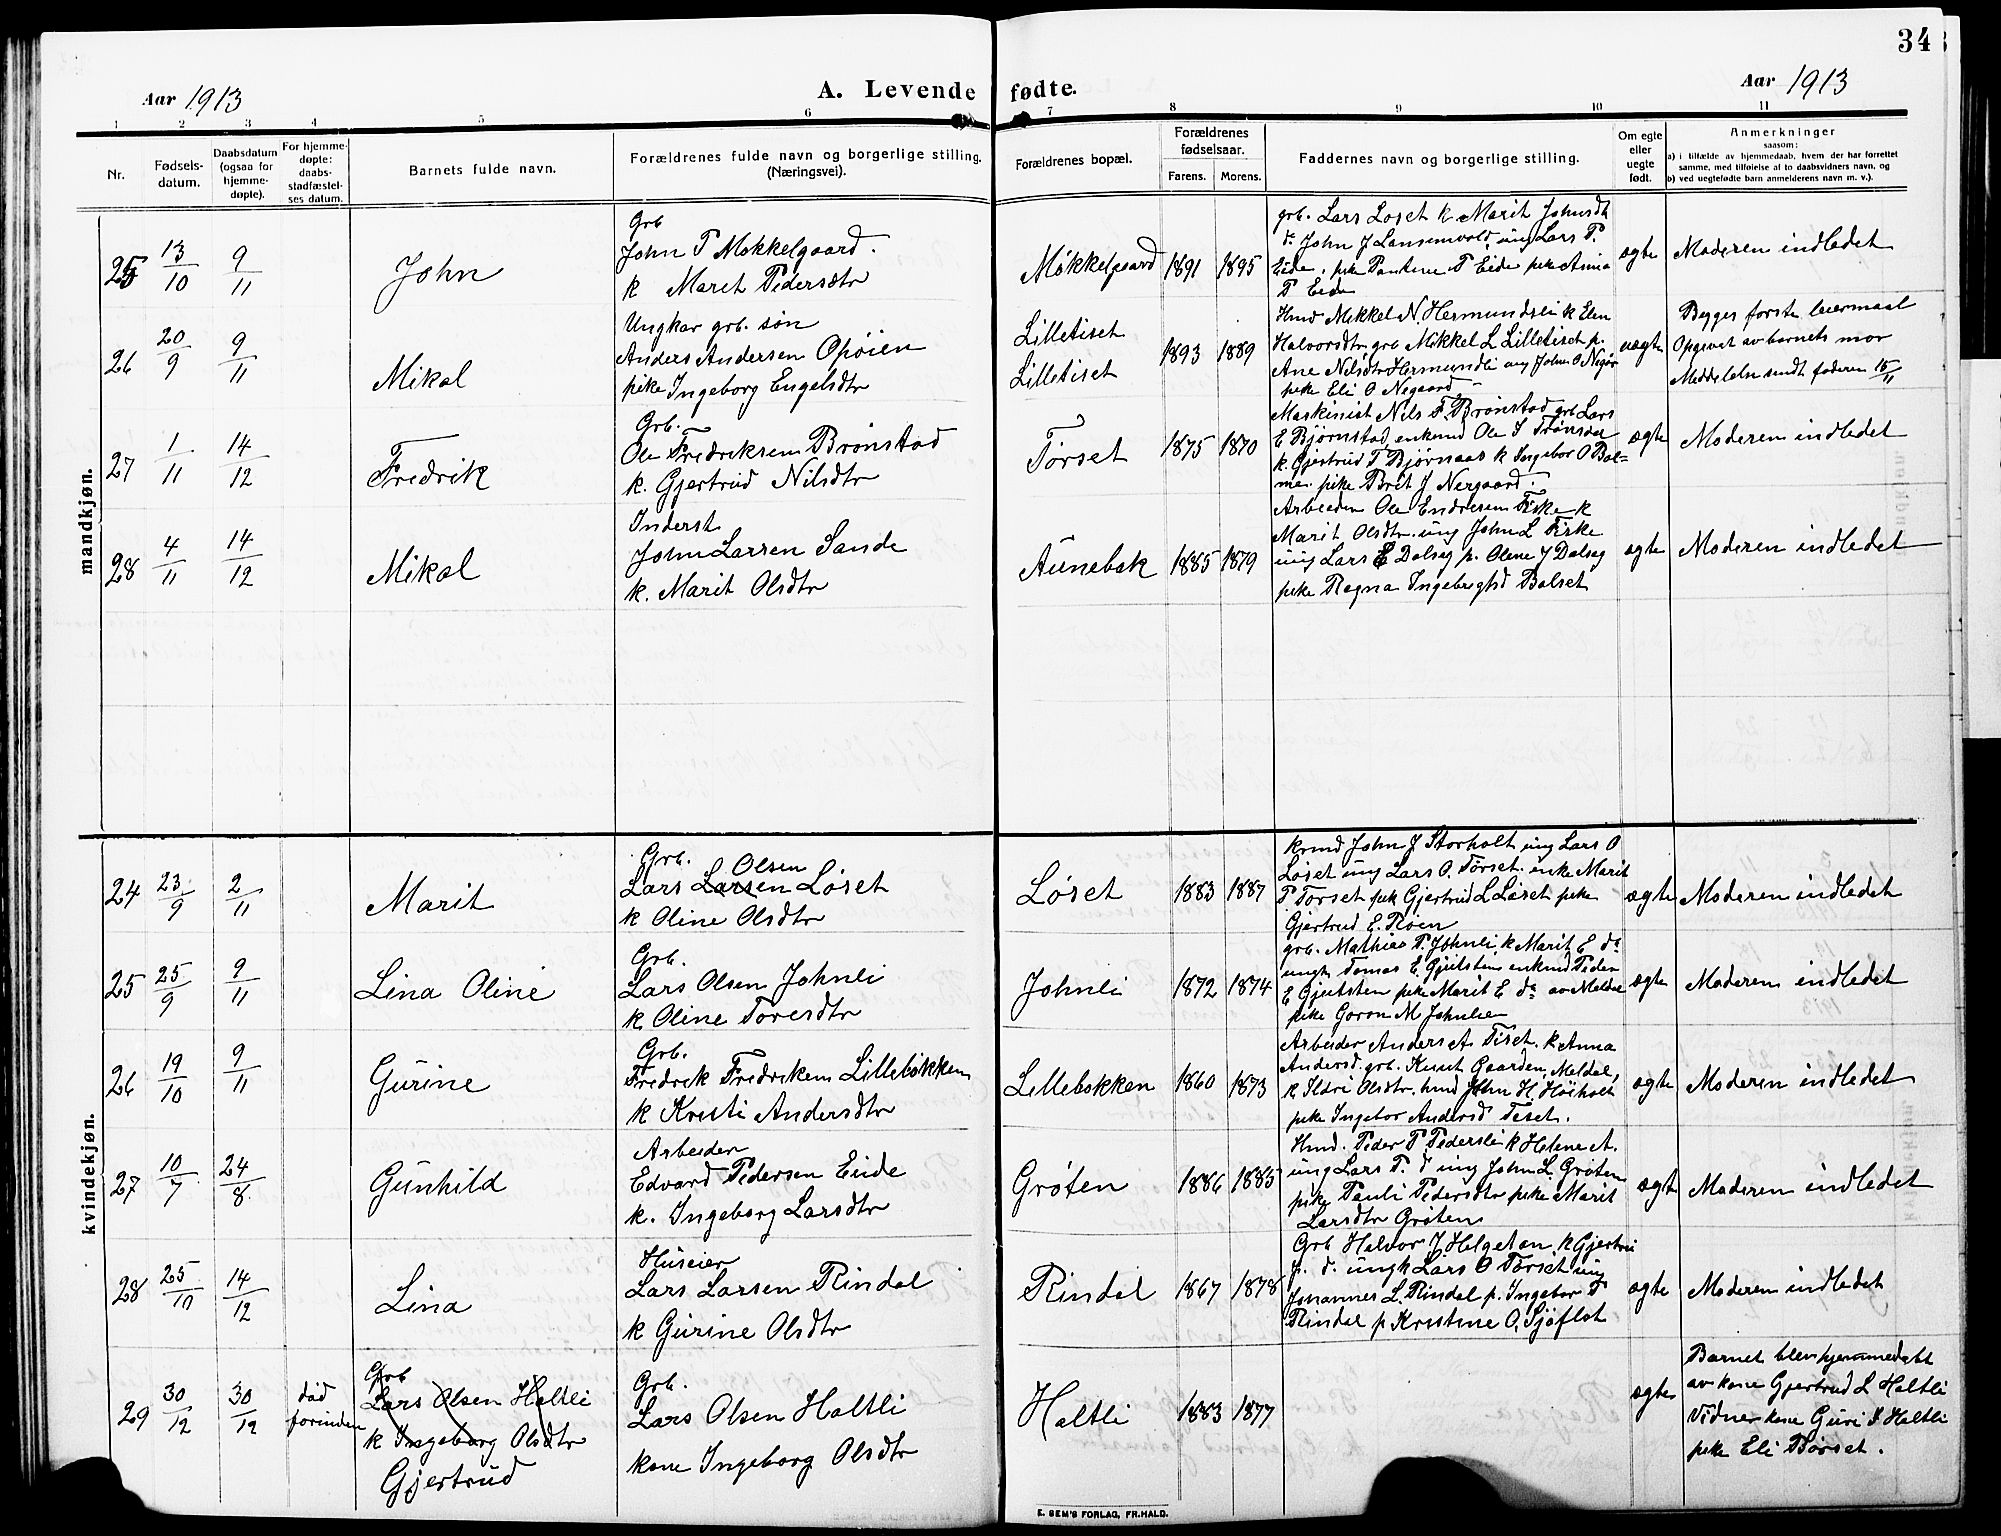 34
Aar 1913
A. Levende fødte.
Aar 1913
1 2 3 4 5 6 7 8 9 10 11
Nr.
Fødsels-
datum.
Daabsdatum
(ogsaa for
hjemme-
døpte).
For hjemme-
døpte:
daabs-
stadfæstel-
ses datum.
Barnets fulde navn.
Forældrenes fulde navn og borgerlige stilling.
(Næringsvei).
Forældrenes bopæl.
Forældrenes
fødselsaar.
Farens. Morens.
Faddernes navn og borgerlige stilling.
Om egte
eller
uegte
født.
Anmerkninger
saasom:
a) i tilfælde av hjemmedaab, hvem der har forrettet
samme, med tilføielse af to daabsvidners navn, og
b) ved uegtefødte barn anmelderens navn m. v.).
mandkjøn.
25 13/10 9/11 John
Grb
John P Mokkelgaard.
k Marit Pedersdtr
Møkkelgaard 1891 1895
grb. Lars Løset k Marit Johnsdt
d. John J Langenvold, ung Lars P.
Eide. pike Pauline P Eide pike Anna
P Eide
egte Moderen indledet
26 20/9 9/11 Mikal
Ungkar grb. søn
Anders Andersen Opøien
pike Ingeborg Engelsdtr
Lilletiset
Lilletiset
1893 1889
Hmd Mikkel N Hermundsli k Elen
Halvorsdtr grb Mikkel L Lilletiset p.
Ane Nilsdtr Hermundli ung John O Negår
pike Eli O Negaard
uegte
Begges første leiermaal
Opgivet av barnets mor
Meddelelse sendt faderen 15/11
27 1/11 14/12 Fredrik
Grb.
Ole Fredriksen Brønstad
k. Gjertrud Nilsdtr
Tørset 1875 1870
Maskinist Nils F. Brønstad grb Lars
E Bjørnstad enkmd Ole J Trønsdal
k. Gjertrud T Bjørnaas k Ingebor O Bol=
me. pike Brit J Nergaard.
egte Moderen indledet
28 4/11 14/12 Mikal
Inderst
John Larsen Sande
k. Marit Olsdtr
Aunebak 1885 1879
Arbeider Ole Endresen Fiske k
Marit Olsdtr. ung John L Fiske
ung Lars E Dalseg p. Olene J Dalseg
pike Ragna Ingebrigtsd Bolset
egte Moderen indledet
kvindekjøn.
24 23/9 2/11 Marit
Grb. Olsen
Lars Larsen Løset
k Oline Olsdtr
Løset 1883 1887
krmd John J Storholt ung Lars O
Løset ung Lars O. Tørset. enke Marit
P Tørset pik Gjertrud L Løset pike
Gjertrud E. Røen
egte Moderen indledet
25 25/9 9/11 Lina Oline
Grb.
Lars Olsen Johnli
k Oline Toresdtr
Johnli 1872 1874
grb. Mathias P. Johnli k Marit E do
ungk Tomas E. Gjulsten enkmd Peder
E Gjulsten pike Marit E do av Meldal
pike Goron M Johnlien
egte Moderen indledet
26 19/10 9/11 Gurine
Grb.
Fredrik Fredriksen Lillebøkken
k Kristi Andersdtr
Lillebokken 1860 1873
Arbeider Anders A Tiset. k Anna
Andersd. grb. Knut Gaarden, Meldal,
k Ildri Olsdtr. hmd John H. Høiholt
pike Ingebor Andersd Tiset.
egte Moderen indledet
27 10/7 24/8 Gunhild
Arbeider
Edvard Pedersen Eide
k. Ingeborg Larsdtr
Grøten 1886 1885
Hmd. Peder P Pedersli k Helene A.
ung Lars P. d ung John L. Grøten
pike Pauli Pedersdtr pike Marit
Larsdtr Grøten
egt Moderen indledet
28 25/10 14/12 Lina
Huseier
Lars Larsen Rindal
k Gurine Olsdtr
Rindal 1867 1878
Grb Halvor J Helgetun k Gjertru
J. d. ungk Lars O Tørset ung
Johannes L. Rindal p. Ingebor P
Rindal p Kristine O. Sjøflot
egte Moderen indledet
29 30/12 30/12
død
forinden
Grb
Lars Olsen Haltli
k Ingeborg Olsdtr
Gjertrud
Grb.
Lars Olsen Haltli
kone Ingeborg Olsdtr
Haltli 1883 1877
egte
Barnet blev hjemmedøbt
av kone Gjertrud L Haltli
Vidner kone Guri I Haltli
pike Eli Børset.
E. SEM'S FORLAG, FR.HALD.